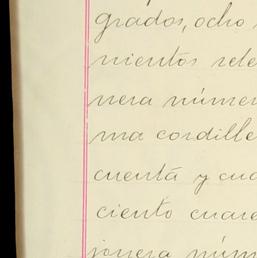 grados, ocho
nientos sete
nera númer
ma cordille
cuenta y cua
ciento cuare
jonera núm